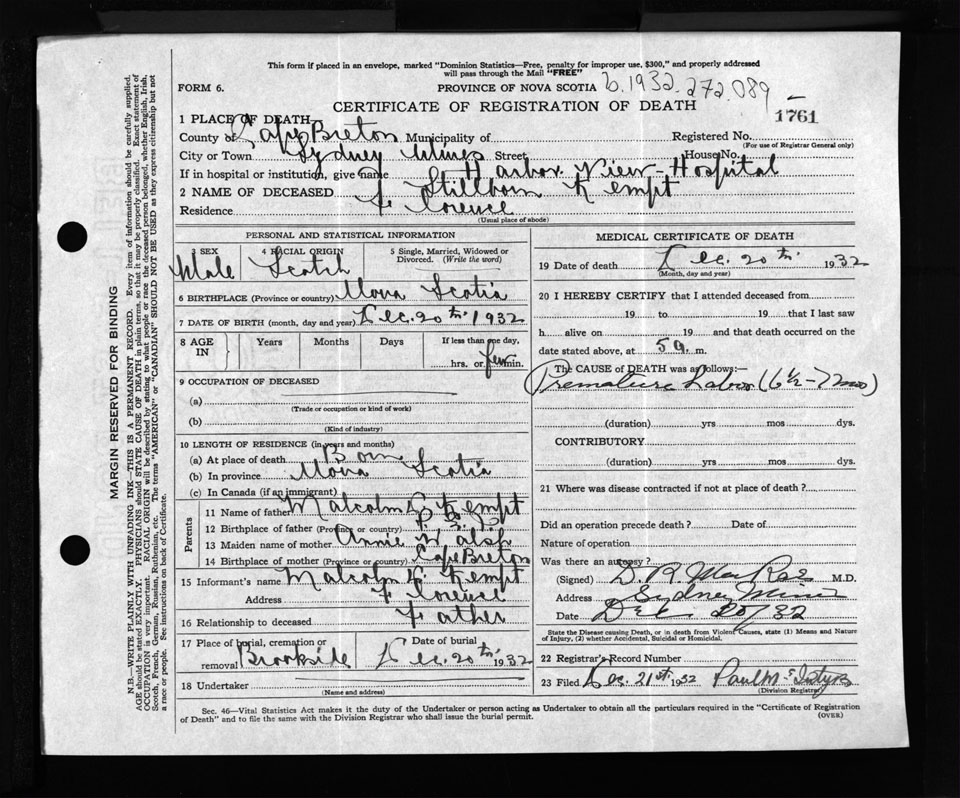 This form if placed in an envelope, marked "Dominion Statistics—Free, penalty for improper use, $300," and properly addressed
will pass through the Mail "FREE"
FORM 6.
PROVINCE OF NOVA SCOTIA b.1932.272.089
CERTIFICATE OF REGISTRATION OF DEATH
1761
1 PLACE OF DEATH—
County of Cape Breton Municipality of Registered No.
(For use of Registrar General only)
City or Town Sydney Mines Street House No.
If in hospital or institution, give name Harbor View Hospital
2 NAME OF DECEASED Stillborn Kempt
Residence Florence
(Usual place of abode)
PERSONAL AND STATISTICAL INFORMATION
3 SEX 4 RACIAL ORIGIN 5 Single, Married, Widowed or Divorced. (Write the word)
Male Scotch
6 BIRTHPLACE (Province or country) Nova Scotia
7 DATE OF BIRTH (month, day and year) Dec. 20th. 1932
8 AGE IN Years Months Days If less than one day,
hrs. or few min.
9 OCCUPATION OF DECEASED
(a)
(Trade or occupation or kind of work)
(b)
(Kind of industry)
10 LENGTH OF RESIDENCE (in years and months)
(a) At place of death Born
(b) In province Nova Scotia
(c) In Canada (if an immigrant)
Parents
11 Name of father Malcolm Kempt
12 Birthplace of father (Province or country)
13 Maiden name of mother Annie Walsh
14 Birthplace of mother (Province or country) Cape Breton
15 Informant's name Malcolm Kempt
Address Florence
16 Relationship to deceased Father
17 Place of burial, cremation or removal Brookside Date of burial Dec. 20th. 1932
18 Undertaker
(Name and address)
MEDICAL CERTIFICATE OF DEATH
19 Date of death Dec. 20th. 1932
(Month, day and year)
20 I HEREBY CERTIFY that I attended deceased from
19 to 19 that I last saw
h alive on 19 and that death occurred on the
date stated above, at 5 a. m.
The CAUSE of DEATH was as follows:—
Premature Labor (6½-7 mos)
(duration) yrs mos dys.
CONTRIBUTORY
(duration) yrs mos dys.
21 Where was disease contracted if not at place of death?
Did an operation precede death? Date of
Nature of operation
Was there an autopsy?
(Signed) D. R. MacRae M.D.
Address Sydney Mines
Date Dec 20/32
State the Disease causing Death, or in death from Violent Causes, state (1) Means and Nature
of Injury, (2) whether Accidental, Suicidal or Homicidal.
22 Registrar's Record Number
23 Filed Dec. 21st. 1932 Paul
(Division Registrar)
Sec. 46—Vital Statistics Act makes it the duty of the Undertaker or person acting as Undertaker to obtain all the particulars required in the "Certificate of Registration
of Death" and to file the same with the Division Registrar who shall issue the burial permit. (OVER)
MARGIN RESERVED FOR BINDING
N.B.—WRITE PLAINLY WITH UNFADING INK—THIS IS A PERMANENT RECORD. Every item of information should be carefully supplied.
AGE should be stated EXACTLY. PHYSICIANS should STATE CAUSE OF DEATH in plain terms, so that it may be properly classified. Exact statement of
OCCUPATION is very important. RACIAL ORIGIN will be described by stating to what people or race the deceased person belonged, whether English, Irish,
Scotch, French, German, Russian, Ruthenian, etc. The terms "AMERICAN" or "CANADIAN" SHOULD NOT BE USED as they express citizenship but not
a race or people. See instructions on back of Certificate.